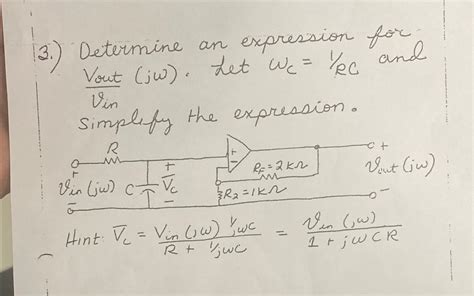 3.) Determine an expression for
Vout/Vin (jω). Let ωc = 1/RC and
simplify the expression.
R
+
Vin (jω)
−
C
+
V̅c
−
+
−
RF = 2 kΩ
R2 = 1 kΩ
+
Vout (jω)
−
Hint: V̅c = Vin (jω) 1/jωC / R + 1/jωC = Vin (jω) / 1 + jωCR